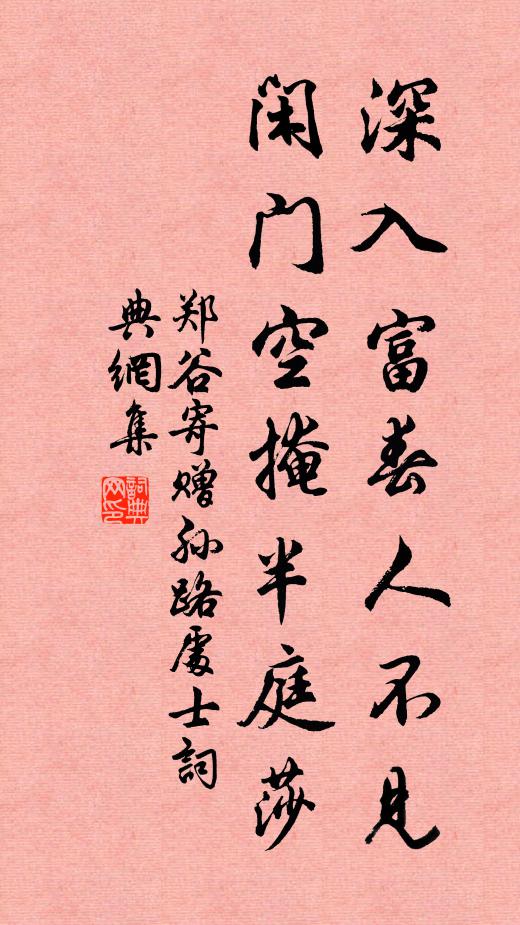 深入富春人不见
闲门空掩半庭莎
郑谷寄赠孙路處士詞
典網集
詞典网印